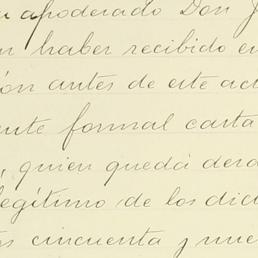 u apoderado Don J
n haber recibido en
ón antes de este ac
ente formal carta
, quien quedá des
legítimo de los dic
os cincuenta y nue